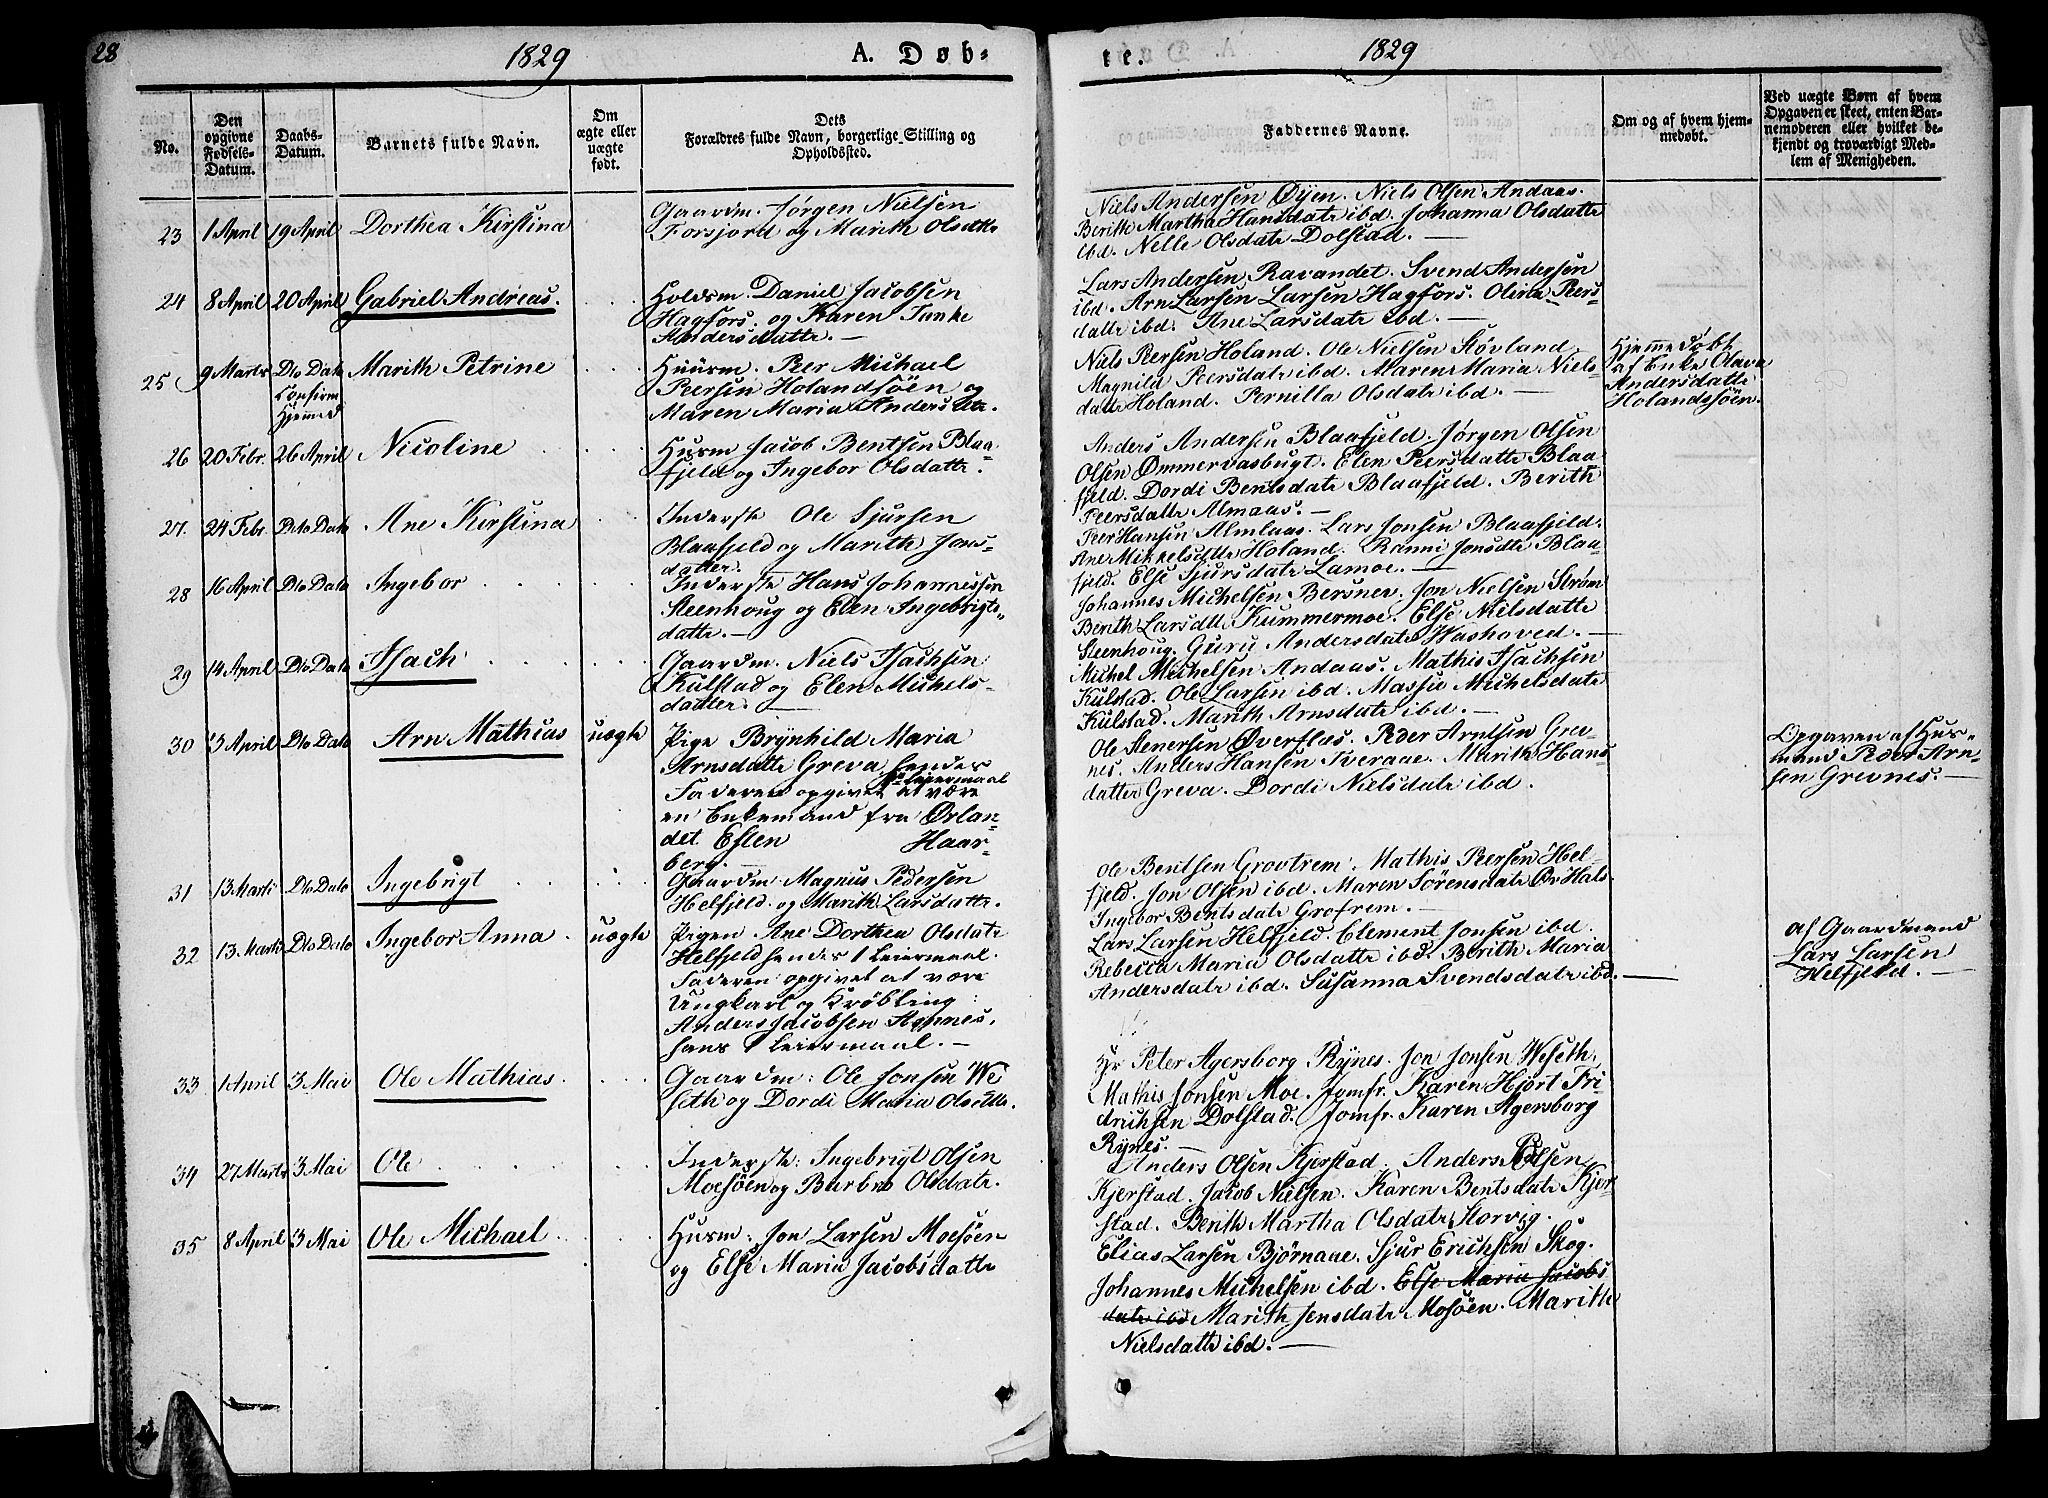 28
1829
A. Døb-
te.
1829
No.
Den opgivne Fødsels-Datum.
Daabs-Datum.
Barnets fulde Navn.
Om ægte eller uægte født.
Dets Forældres fulde Navn, borgerlige Stilling og Opholdssted.
Faddernes Navne.
Om og af hvem hjemmedøbt.
Ved uægte Børn af hvem Opgaven er skeet, enten Barnemoderen eller hvilket bekjendt og troværdigt Medlem af Menigheden.
23 1 April 19 April Dorthea Kirstina
Gaardm. Jørgen Nielsen
Forsjord og Marith Olsdtr
Niels Andersen Øyen. Niels Olsen Andaas.
Berith Martha Hansdatr ibd. Johanna Olsdatte
ibd. Nelle Olsdatr Dolstad.
24 8 April 20 April Gabriel Andreas.
Holdsm. Daniel Jacobsen
Hagfors og Karen Tanke
Andersdatte.
Lars Andersen Ravandet. Svend Andersen
ibd. Arn Larsen Larsen Hagfors. Olina Peers-
datte ibd. Ane Larsdatr ibd.
25 9 Marts Dto Dato
Confirm
Hjemmed
Marith Petrine
Huusm. Peer Michael
Peersen Holandsøen og
Maren Maria Andersdtr.
Niels Peersen Holand. Ole Nielsen Støvland
Magnild Peersdatr ibd. Maren Maria Niels-
datte Holand. Pernilla Olsdatr ibd.
Hjemmedøbt
af Enke Olava
Andersdatte
Holandsøen.
26 20 Febr. 26 April Nicoline
Husm Jacob Bentsen Blaa-
fjeld og Ingebor Olsdatte.
Anders Andersen Blaafjeld. Jørgen Olsen
Olsen Ømmervasbugt. Elen Peersdatte Blaa
fjeld. Dordi Bentsdatr Blaafjeld. Berith
Peersdatte Almaas.
27. 24 Febr. Dito Dato Ane Kirstina
Inderste Ole Sjursen
Blaafjeld og Marith Jons-
datter.
Peer Hansen Almlaas. Lars Jonsen Blaafjeld.
Ane Mikkelsdtte Holand. Ranni Jonsdtr Blaa-
fjeld. Else Sjursdatr Lamoe.
28 16 April Dto Dato Ingebor
Inderste Hans Johannessen
Steenhoug og Elen Ingebrigts-
datte.
Johannes Michelsen Bersner. Jon Nielsen Strøm
Berith Larsdtr Kummermoe. Else Nilsdatte
Steenhoug. Guru Andersdatr Hushoved.
29 14 April Dto Dato Isach
Gaardm. Niels Isachsen
Kulstad og Elen Michels-
datter.
Michel Michelsen Andaas. Mathis Isachsen
Kulstad. Ole Larsen ibd. Massie Michelsdatr
Kulstad. Marith Arnsdatr ibd.
30 3 April Dto Dato Arn Mathias uægte
Pige Brynhild Maria
Arnsdatte Greva hendes
1ste Leiermaal
Faderen opgivet at være
en Enkemand fra Ørlan-
det Esten Haar-
berg.
Ole Stenersen Øverflæs. Peder Arntsen Grev-
nes. Anders Hansen Tveraae. Marith Hans
datter Greva. Dordi Nielsdatr ibd.
Opgaven af Hus-
mand Peder Arn-
sen Grevnes.
31 13 Marti Dto Dato Ingebrigt
Gaardm Magnus Pedersen
Helfjeld og Marith Larsdatte.
Ole Bentsen Grovtrem. Mathis Peersen Hel-
fjeld. Jon Olsen ibd. Maren Sørensdatr Øv Hals
Ingebor Bentsdatr Grofrem.
32 13 Marti Dto Dato Ingebor Anna uægte
Pigen Ane Dorthea Olsdatr
Helfjeld hendes 1 Leiermaal.
Faderen opgivet at være
Ungkarl og Krøbling
Anders Jacobsen Agnnes,
hans 1 Leiermaal.
Lars Larsen Helfjeld. Clement Jonsen ibd.
Rebecca Maria Olsdatte ibd. Berith Maria
Andersdatr ibd. Susanna Svendsdatr ibd.
af Gaardmand
Lars Larsen
Helfjeld.
33 1 April 3 Mai Ole Mathias
Gaardm: Ole Jonsen We
seth og Dordi Maria Olsdtte.
Hr Peter Agersborg Rynes. Jon Jonsen Weseth.
Mathis Jonsen Moe. Jomfr. Karen Hjort Fri
drichsen Dolstad. Jomfr. Karen Agersborg
Rynes.
34 27 Marts 3 Mai Ole
Inderste: Ingebrigt Olsen
Moesøen og Barbro Olsdatr.
Anders Olsen Kjerstad. Anders Olsen
Kjerstad. Jacob Nielsen. Karen Bentsdatr Kjer
stad. Berith Martha Olsdatr Storvig.
35 8 April 3 Mai Ole Michael
Husm: Jon Larsen Moesøen
og Else Maria Jacobsdatte
Elias Larsen Bjørnaae. Sjur Erichsen Skog.
Johannes Michelsen ibd. Else Maria Jacobs
datr ibd Marith Jensdatr Mosøen. Marith
Nielsdatte ibd.